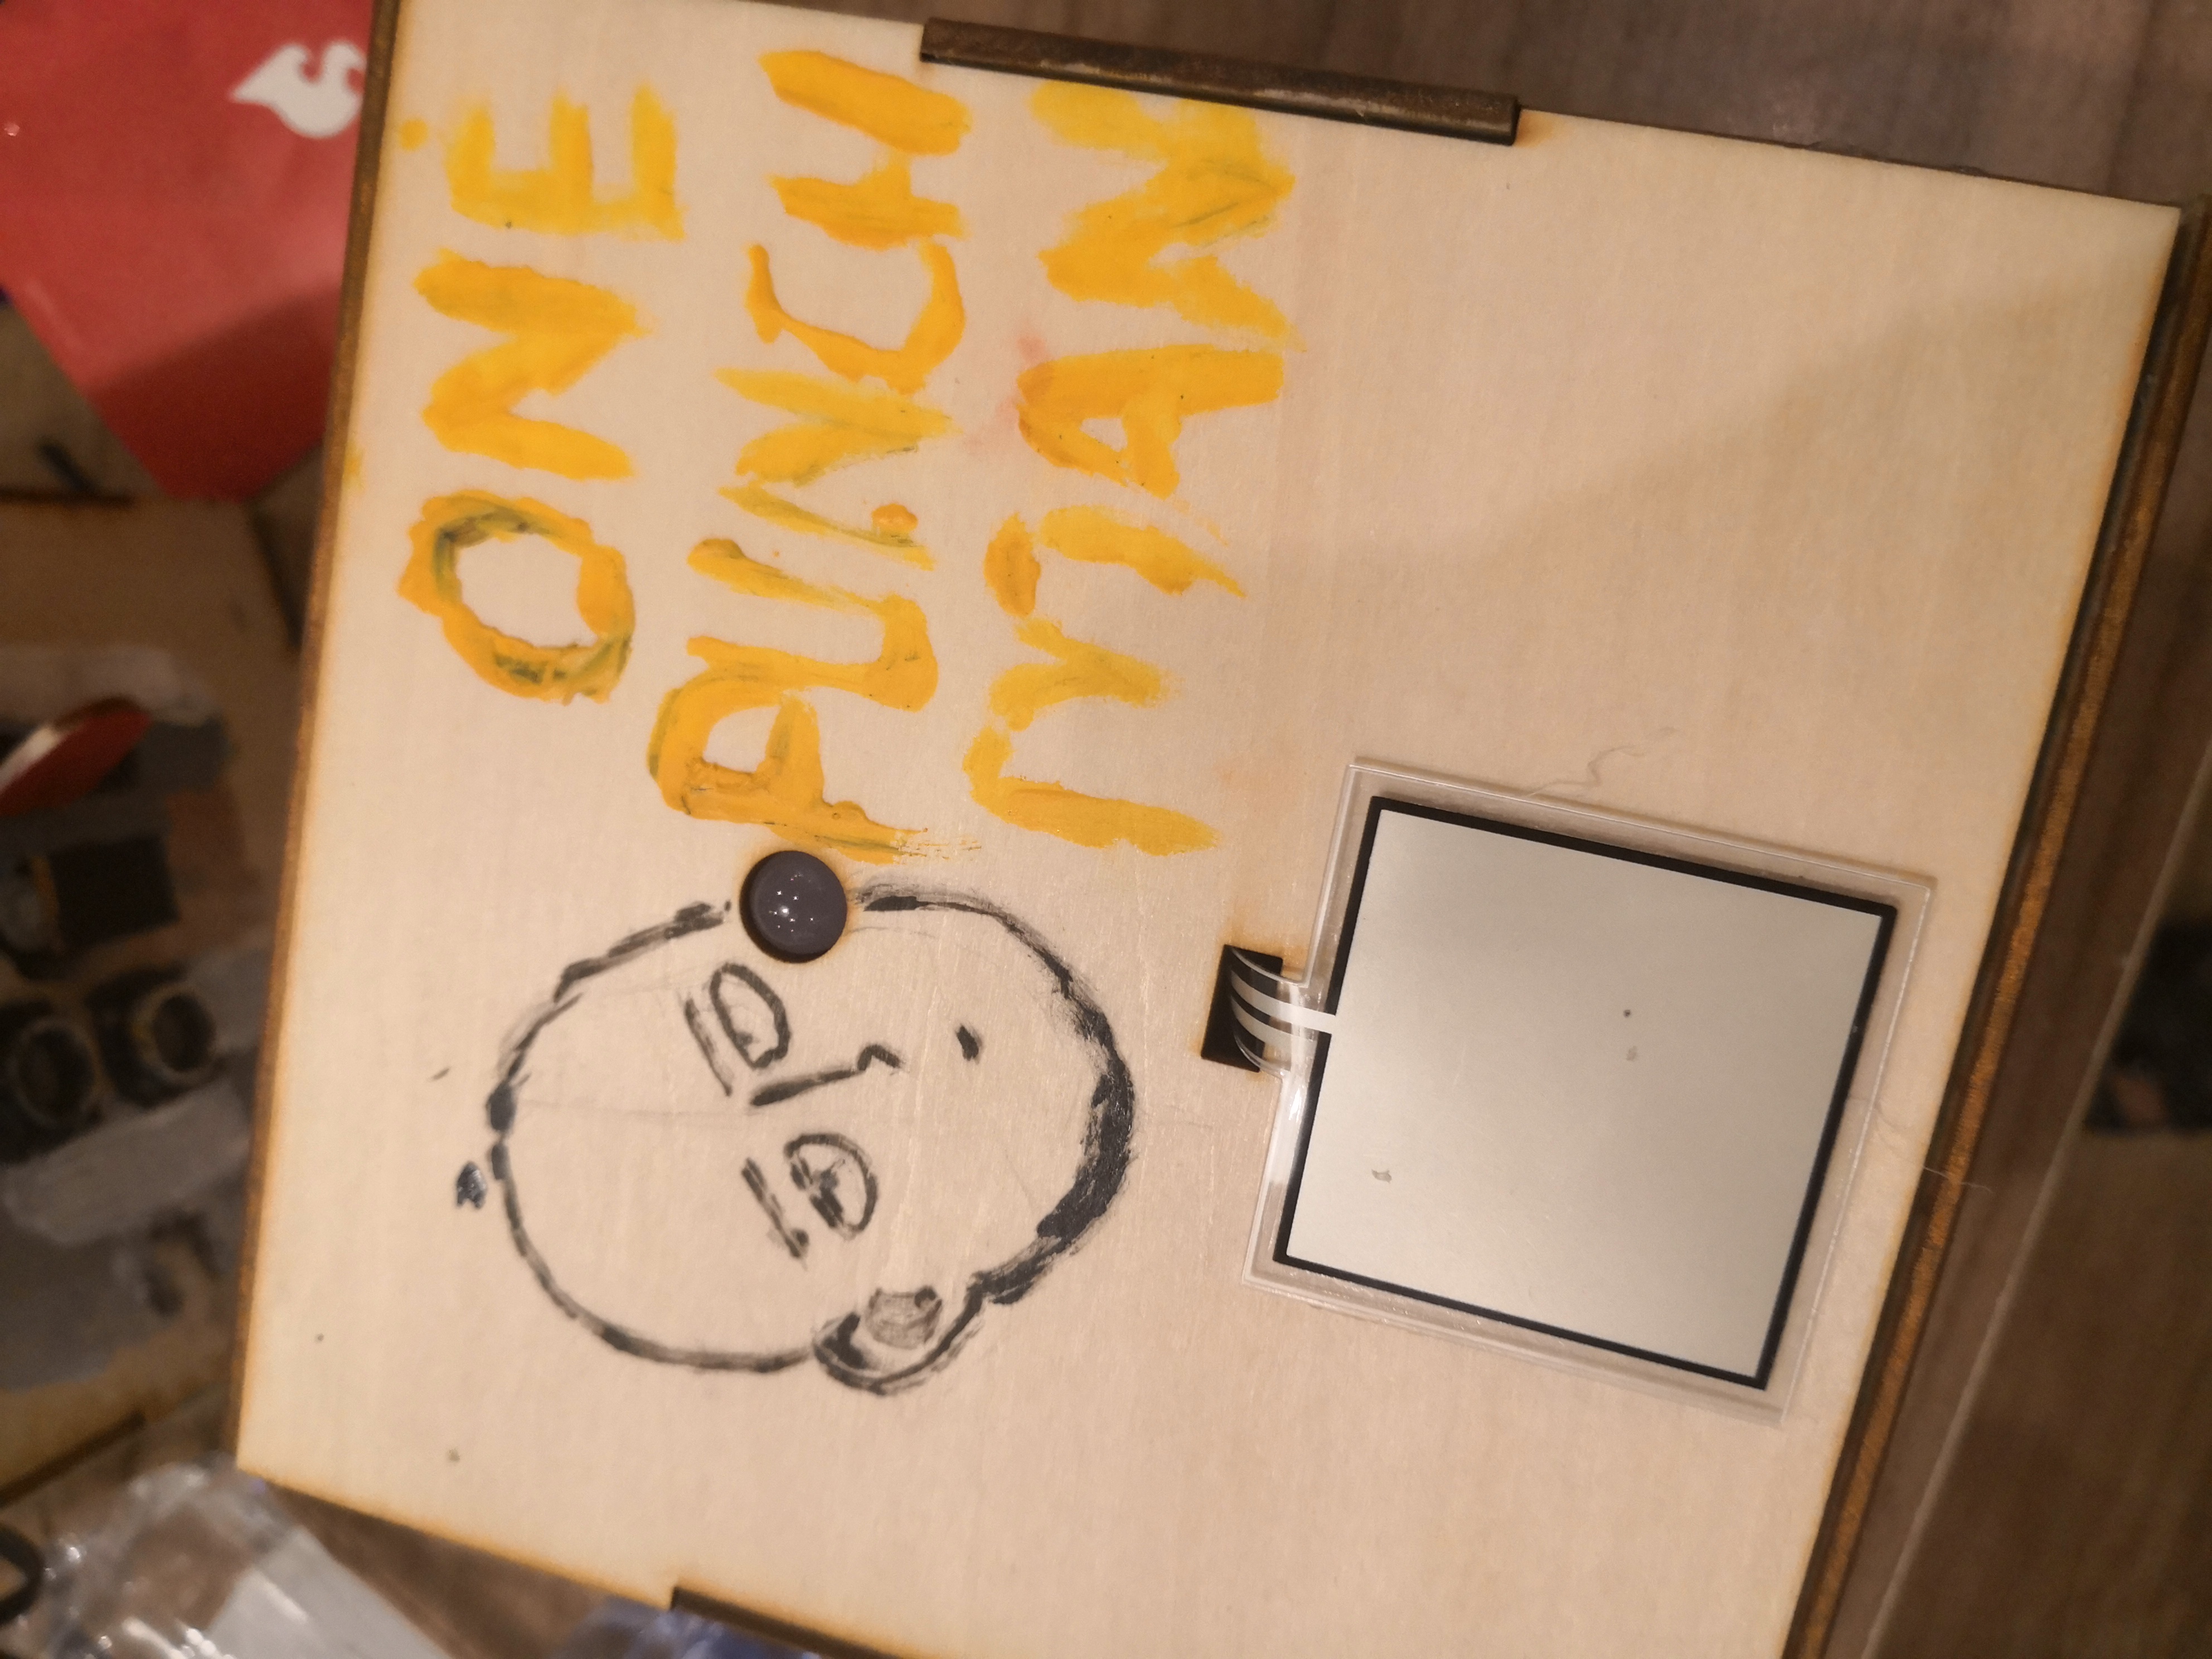 ONE
PUNCH
MAN